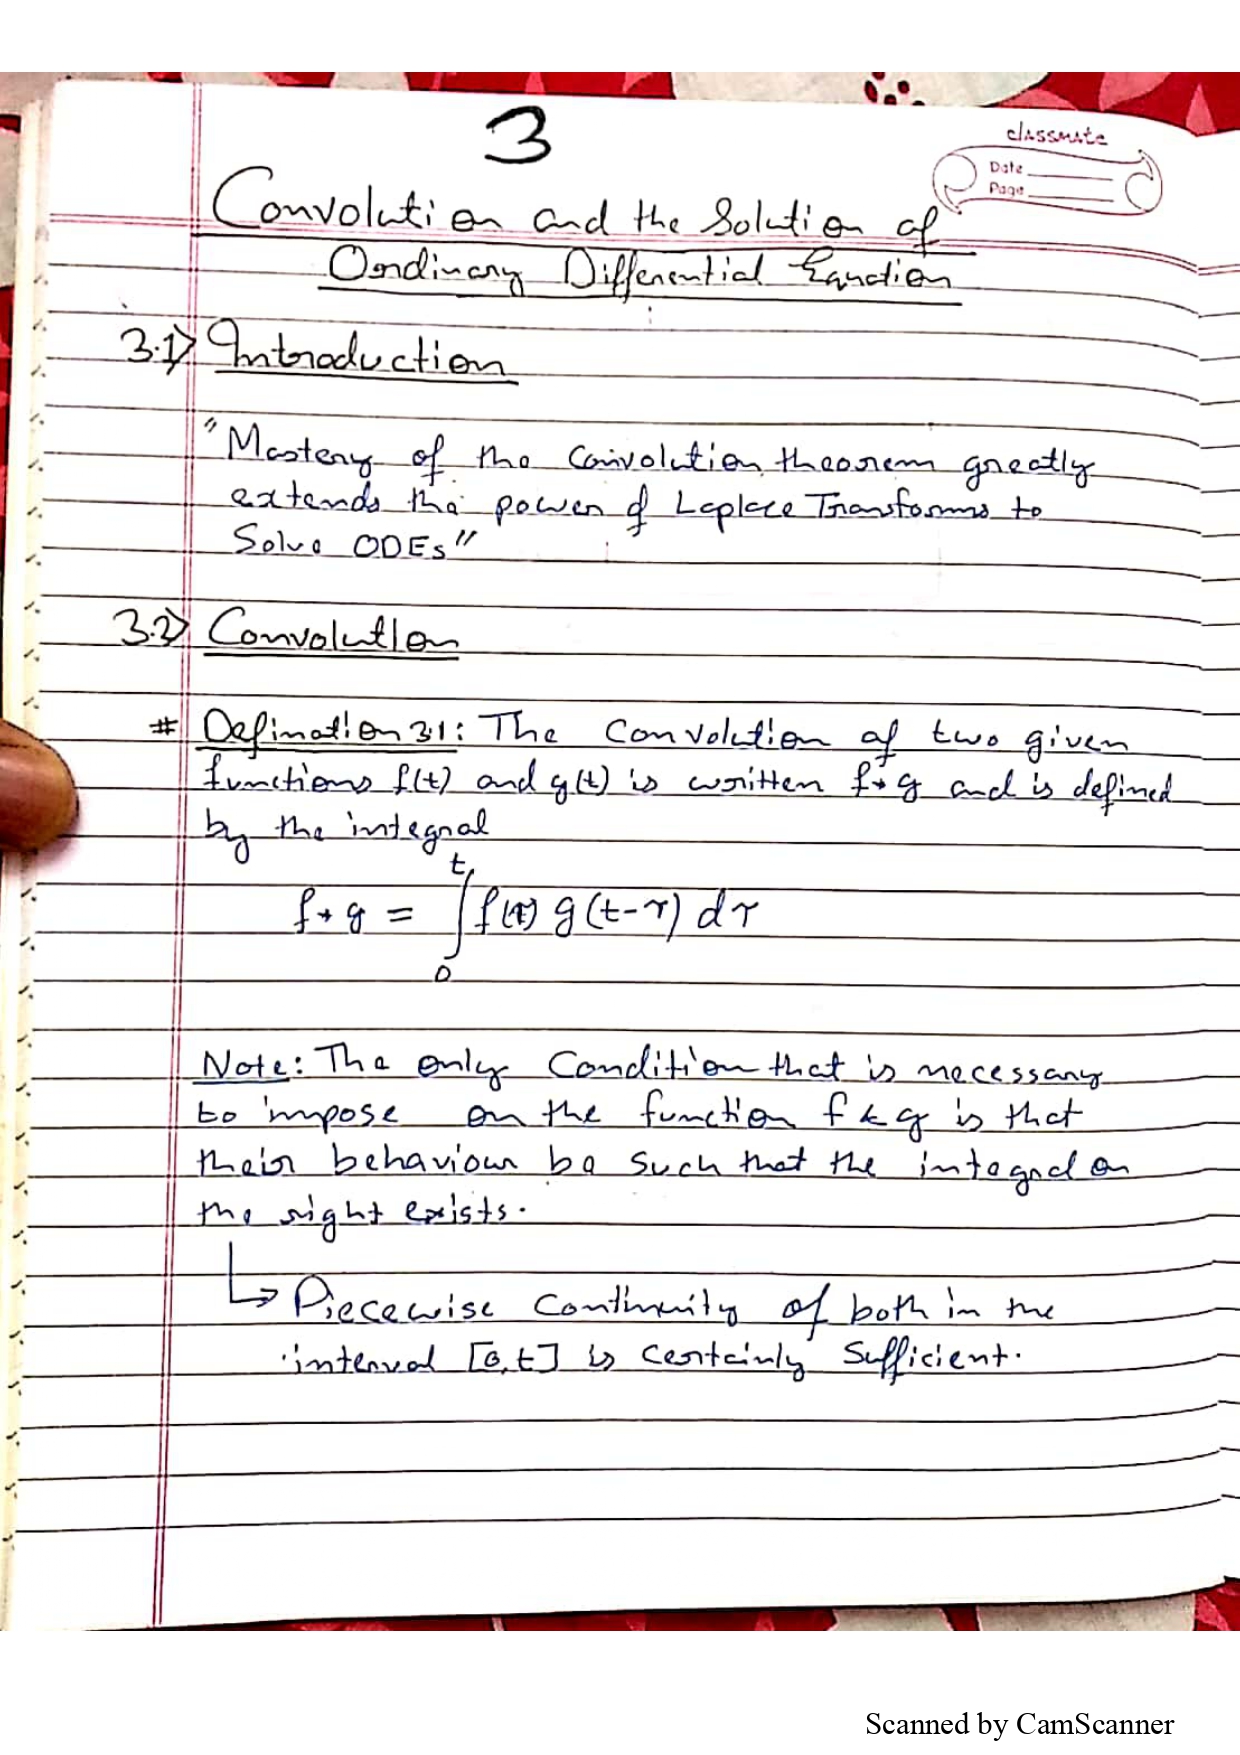 3
classmate
Date
Page
Convolution and the Solution of
Ordinary Differential Equation
3.1> Introduction
"Mastery of the Convolution theorem greatly
extends the power of Laplace Transforms to
Solve ODEs"
3.2> Convolution
# Defination 3.1: The Convolution of two given
functions f(t) and g(t) is written f*g and is defined
by the integral
f*g = ∫₀ᵗ f(τ) g(t-τ) dτ
Note: The only Condition that is necessary
to impose on the function f & g is that
their behaviour be such that the integral on
the right exists.
↳ Piecewise Continuity of both in the
interval [0,t] is certainly Sufficient.
Scanned by CamScanner